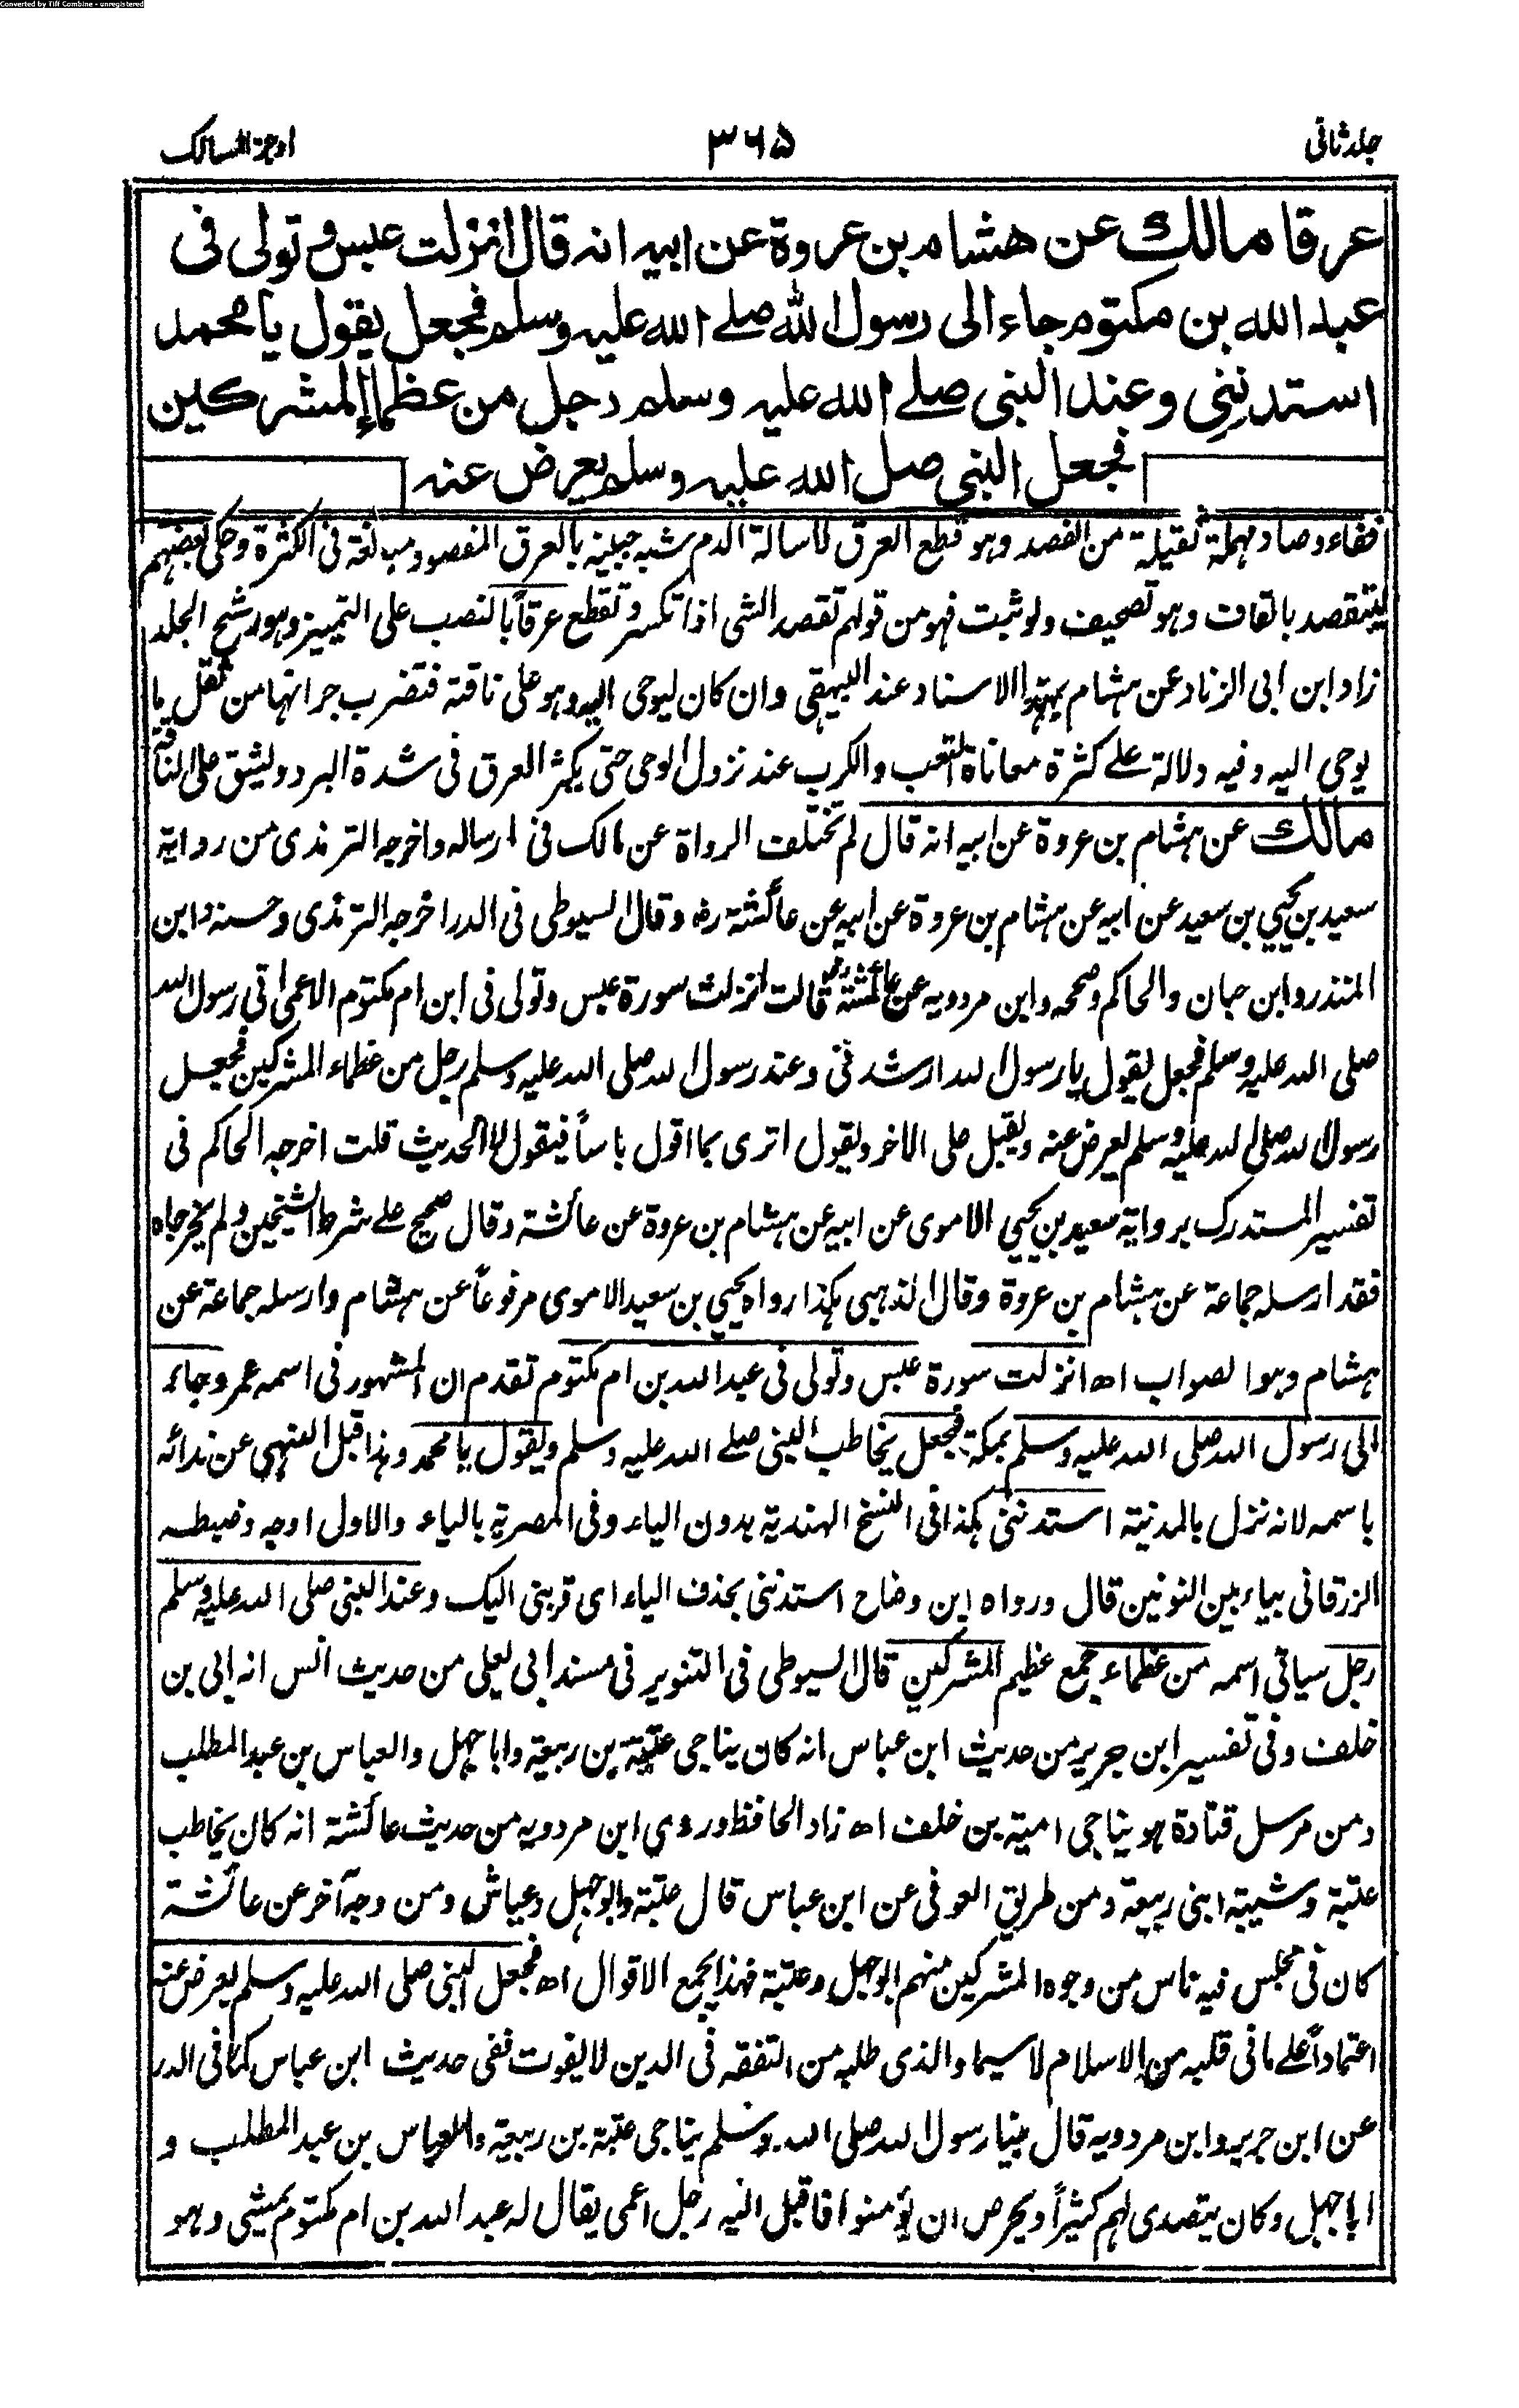 Converted by Tiff Combine - unregistered
جلد ثانی
۳۶۵
اوجز المسالک
عرقا مالك عن هشام بن عروة عن ابيه انه قال انزلت عبس وتولى فى
عبد الله بن مكتوم جاء الى رسول الله صلے الله عليه وسلم فجعل يقول يا محمد
استدننى وعند النبى صلے الله عليه وسلم رجل من عظماء المشركين
فجعل النبى صل الله عليه وسلم يعرض عنه
ففاء وصاد مهملة ثقيلة من الفصد وهو قطع العرق لاسالة الدم شبه جبينه بالعرق المفصود مبالغة فى الكثرة وحكى بعضهم
ليتقصد بالقاف وهو تصحيف ولو ثبت فهو من قولهم تقصد الشى اذا تكسر وتقطع عرقاً بالنصب على التمييز وهو رشح الجلد
زاد ابن ابى الزناد عن هشام بهذا الاسناد عند البيهقى وان كان ليوحى اليه وهو على ناقته فتضرب جرانها من ثقل ما
يوحى اليه وفيه دلالة علے كثرة معاناة التعب والكرب عند نزول الوحى حتى يكثر العرق فى شدة البرد وليشق على الناقة
مالك عن هشام بن عروة عن ابيه انه قال لم تختلف الرواة عن مالك فى ارساله واخرجه الترمذى من رواية
سعيد بن يحيي بن سعيد عن ابيه عن هشام بن عروة عن ابيه عن عائشة رض وقال السيوطى فى الدر اخرجه الترمذى وحسنه وابن
المنذر وابن حبان والحاكم وصححه وابن مردويه عن عائشة رض قالت انزلت سورة عبس وتولى فى ابن ام مكتوم الاعمى اتى رسول الله
صلى الله عليه وسلم فجعل يقول يا رسول الله ارشدنى وعند رسول الله صلى الله عليه وسلم رجل من عظماء المشركين فجعل
رسول الله صلى الله عليه وسلم يعرض عنه ويقبل على الاخر ويقول اترى بما اقول باساً فيقول لا الحديث قلت اخرجه الحاكم فى
تفسير المستدرك برواية سعيد بن يحيي الاموى عن ابيه عن هشام بن عروة عن عائشة وقال صحيح علے شرط الشيخين ولم يخرجاه
فقد ارسله جماعة عن هشام بن عروة وقال الذهبى هكذا رواه يحيي بن سعيد الاموى مرفوعاً عن هشام وارسله جماعة عن
هشام وهو الصواب اھ انزلت سورة عبس وتولى فى عبد الله بن ام مكتوم تقدم ان المشهور فى اسمه عمرو جاء
الى رسول الله صلى الله عليه وسلم بمكة فجعل يخاطب النبى صلے الله عليه وسلم ويقول يا محمد وهذا قبل النهى عن ندائه
باسمه لانه نزل بالمدينة استدننى هكذا فى النسخ الهندية بدون الياء وفى المصرية بالياء والاول اوجه وضبطه
الزرقانى بياء بين النونين قال ورواه ابن وضاح استدننى بحذف الياء اى قربنى اليك وعند النبى صلى الله عليه وسلم
رجل سياتى اسمه من عظماء جمع عظيم المشركين قال السيوطى فى التنوير فى مسند ابى يعلى من حديث انس انه ابى بن
خلف وفى تفسير ابن جرير من حديث ابن عباس انه كان يناجى عتبة بن ربيعة وابا جهل والعباس بن عبد المطلب
ومن مرسل قتادة هو يناجى امية بن خلف اھ زاد الحافظ وروى ابن مردويه من حديث عائشة انه كان يخاطب
عتبة وشيبة ابنى ربيعة ومن طريق العوفى عن ابن عباس قال عتبة وابو جهل وعياش ومن وجه آخر عن عائشة
كان فى مجلس فيه ناس من وجوه المشركين منهم ابو جهل وعتبة فهذا يجمع الاقوال اھ فجعل النبى صلى الله عليه وسلم يعرض عنه
اعتماداً علے ما فى قلبه من الاسلام لا سيما والذى طلبه من التفقه فى الدين لا يفوت ففى حديث ابن عباس كما فى الدر
عن ابن جرير وابن مردويه قال بينا رسول الله صلى الله وسلم يناجى عتبة بن ربيعة والعباس بن عبد المطلب و
ابا جهل وكان يتصدى لهم كثيراً ويحرص ان يؤمنوا فاقبل اليه رجل اعمى يقال له عبد الله بن ام مكتوم يمشى وهو